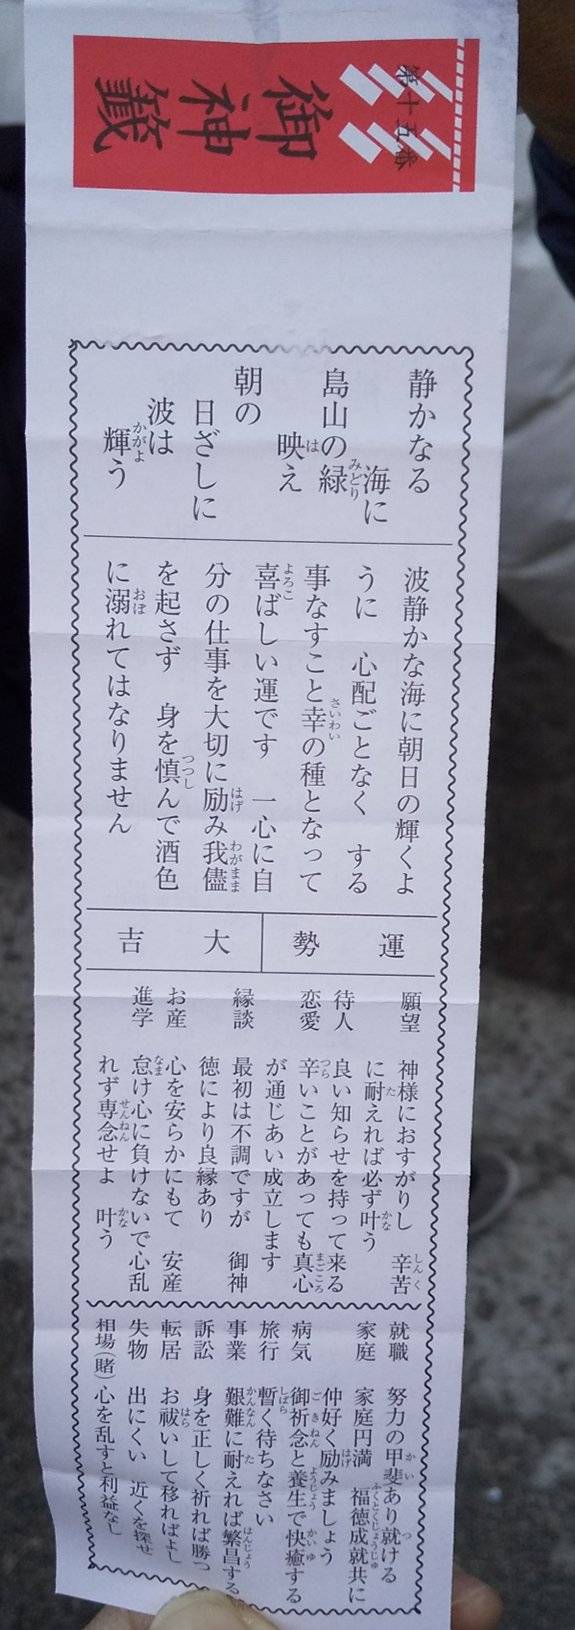 第十五番
御神籤
静かなる
海に
島山の緑
映え
朝の
日ざしに
波は
輝う
波静かな海に朝日の輝くよ
うに 心配ごとなく する
事なすこと幸の種となって
喜ばしい運です 一心に自
分の仕事を大切に励み我儘
を起さず 身を慎んで酒色
に溺れてはなりません
運勢
大吉
願望 神様におすがりし 辛苦
に耐えれば必ず叶う
待人 良い知らせを持って来る
恋愛 辛いことがあっても真心
が通じあい成立します
縁談 最初は不調ですが 御神
徳により良縁あり
お産 心を安らかにもて 安産
進学 怠け心に負けないで心乱
れず専念せよ 叶う
就職 努力の甲斐あり就ける
家庭 家庭円満 福徳成就共に
仲好く励みましょう
病気 御祈念と養生で快癒する
旅行 暫く待ちなさい
事業 艱難に耐えれば繁昌する
訴訟 身を正しく祈れば勝つ
転居 お祓いして移ればよし
失物 出にくい 近くを探せ
相場(賭) 心を乱すと利益なし